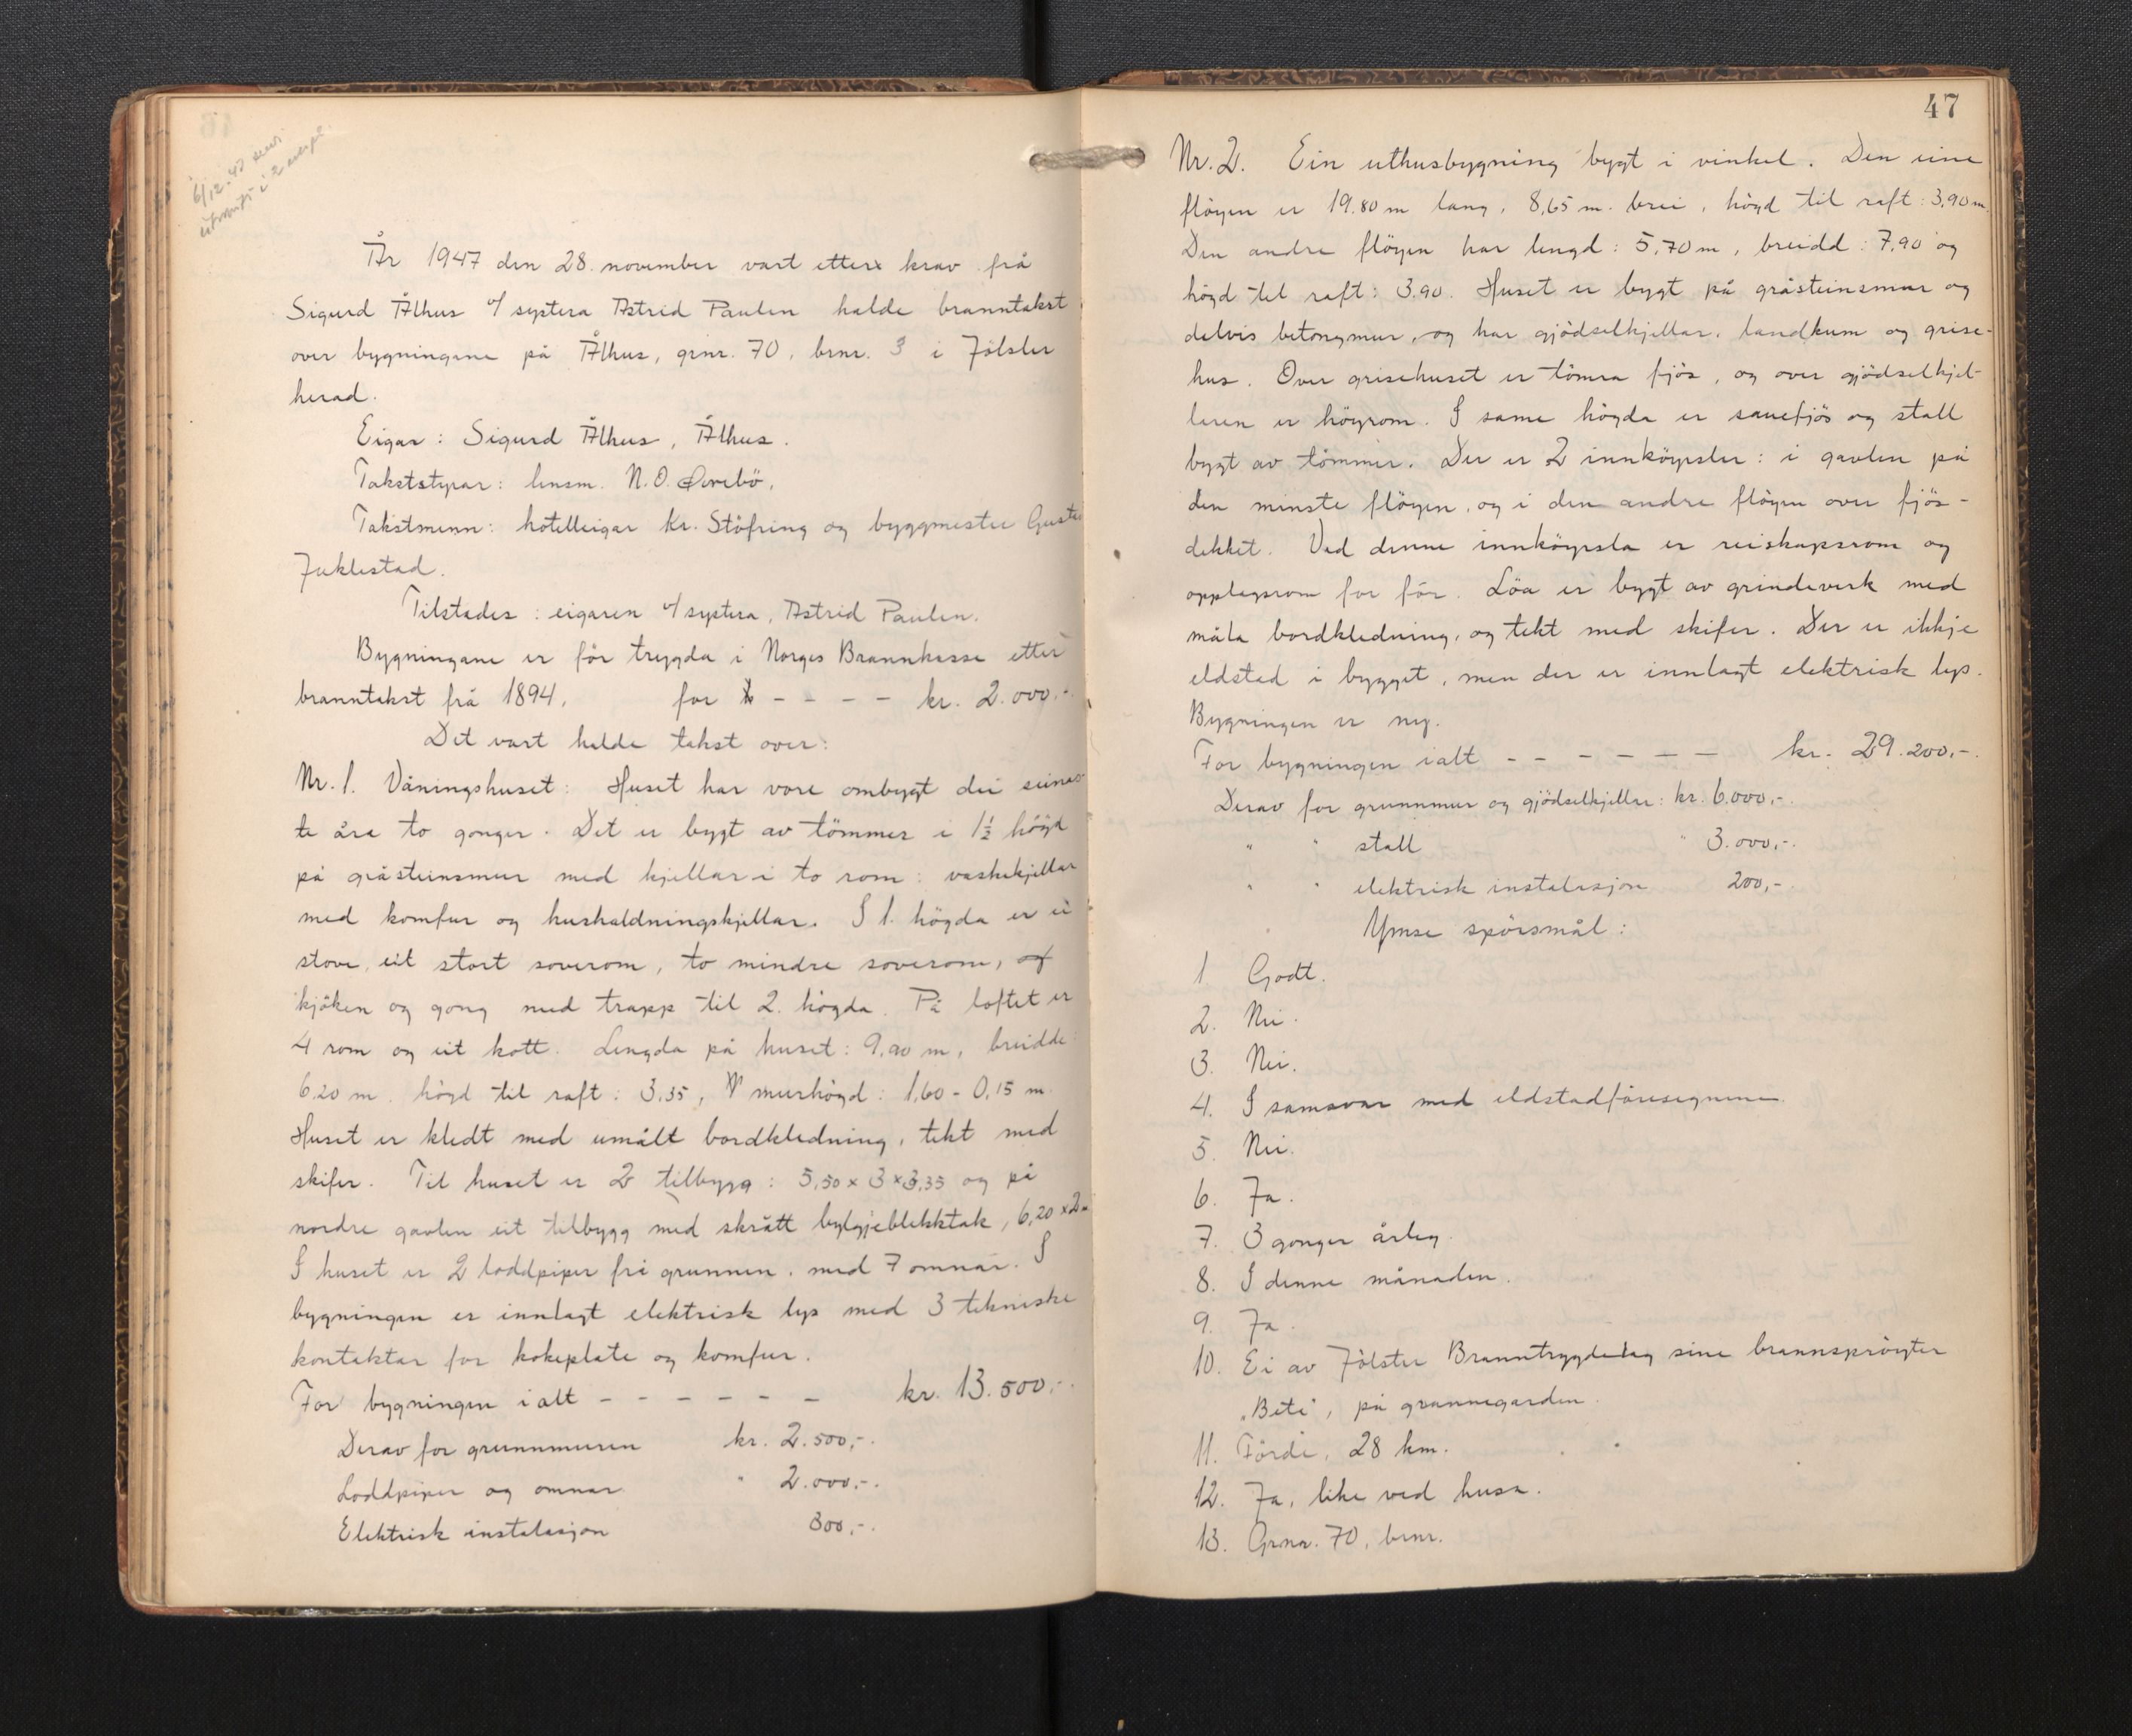 6/12-47 sendt
utskrift i 2 eks.pl.
År 1947 den 28. november vart etter krav frå
Sigurd Ålhus v/ systera Astrid Paulen halde branntakst
over bygningane på Ålhus, grnr. 70, brnr. 3 i Jölster
herad.
Eigar: Sigurd Ålhus, Ålhus.
Takststyrar: lensm. N.O. Örebö.
Takstmenn: hotelleigar Kr. Stöfring og byggmester Gustav
Juklestad.
Tilstades: eigaren v/ systera, Astrid Paulen.
Bygningane er för trygda i Norges Brannkasse etter
branntakst frå 1894, for - - - - kr. 2.000.-.
Det vart halde takst over:
Nr. 1. Våningshuset: Huset har vore ombygt dei seinas-
te åra to gonger. Det er bygt av tömmer i 1½ högd
på gråsteinsmur med kjellar i to rom: vaskekjellar
med komfur og hushaldningskjellar. I 1. högda er ei
stove, eit stort soverom, to mindre soverom, og
kjöken og gong med trapp til 2. högda. På loftet er
4 rom og eit kott. Lengda på huset: 9,90 m, breidde:
6,20 m. högd til raft: 3,35, murhögd: 1,60 - 0,15 m.
Huset er kledt med umålt bordkledning, tekt med
skifer. Til huset er 2 tilbygg: 5,50 x 3 x 3,35 og på
nordre gavlen eit tilbygg med skrått bylgjeblekktak, 6,20 x 2 m.
I huset er 2 loddpiper frå grunnen, med 7 omnar. I
bygningen er innlagt elektrisk lys med 3 tekniske
kontaktar for kokeplate og komfur.
For bygningen ialt - - - - - - kr. 13.500.-.
Derav for grunnmuren kr. 2.500,-.
Loddpiper og omnar " 2.000,-.
Elektrisk instalasjon 300,-.
47
Nr. 2. Ein uthusbygning bygt i vinkel. Den eine
flöyen er 19.80 m lang, 8,65 m. brei, högd til raft: 3,90 m.
Den andre flöyen har lengd: 5,70 m, breidd: 7,90 og
högd til raft: 3,90. Huset er bygt på gråsteinsmur og
delvis betongmur, og har gjödselkjellar, landkum og grise-
hus. Over grisehuset er tömra fjös, og over gjödselkjel-
leren er höyrom. I same högda er sauefjös og stall
bygt av tömmer. Der er 2 innköyrsler: i gavlen på
den minste flöyen, og i den andre flöyen over fjös-
dekket. Ved denne innköyrsla er reiskapsrom og
opplegsrom for för. Löa er bygt av grindeverk med
måla bordkledning, og tekt med skifer. Der er ikkje
eldstad i bygget, men der er innlagt elektrisk lys.
Bygningen er ny.
For bygningen ialt - - - - - - kr. 29.200,-.
Derav for grunnmur og gjödselkjellar: kr. 6.000,-.
" " stall " 3.000,-.
" " elektrisk instalasjon 200,-.
Ymse spörsmål:
1 Godt.
2. Nei.
3. Nei.
4. I samsvar med eldstadföresegnene.
5. Nei.
6. Ja.
7. 3 gonger årleg.
8. I denne månaden.
9. Ja.
10. Ei av Jölster Branntrygdelag sine brannspröyter
"Beti", på grannegarden.
11. Förde, 28 km.
12. Ja, like ved husa.
13. Grnr. 70, brnr.